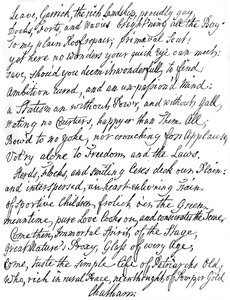 Leave, Garrick, the rich Landskip, proudly gay,
Docks, Forts, and Navies bright'ning all the Bay:
To my plain Roof repair, primæval Seat:
yet here no Wonders your quick Eye can meet:
Save, should you deem it wonderfull, to find
Ambition cured, and an unpassion'd Mind:
a Statesman without Pow'r, and without Gall,
Hating no Courtiers, happyer than Them All;
Bow'd to no Yoke, nor crouching for Applause,
Vot'ry alone to Freedom and the Laws.
Herds, flocks, and smiling Ceres deck our Plain:
and interspersed, an heart-enlivening Train
of Sportive Children, frolick o'er the Green,
meantime, pure Love looks on, and consecrates the Scene.
Come then, Immortal Spirit of the Stage,
Great Nature's Proxy, Glass of every Age,
Come, taste the simple Life of Patriarchs Old,
Who, rich in rural Peace, ne'er thought of Pomp or Gold.
Chatham.